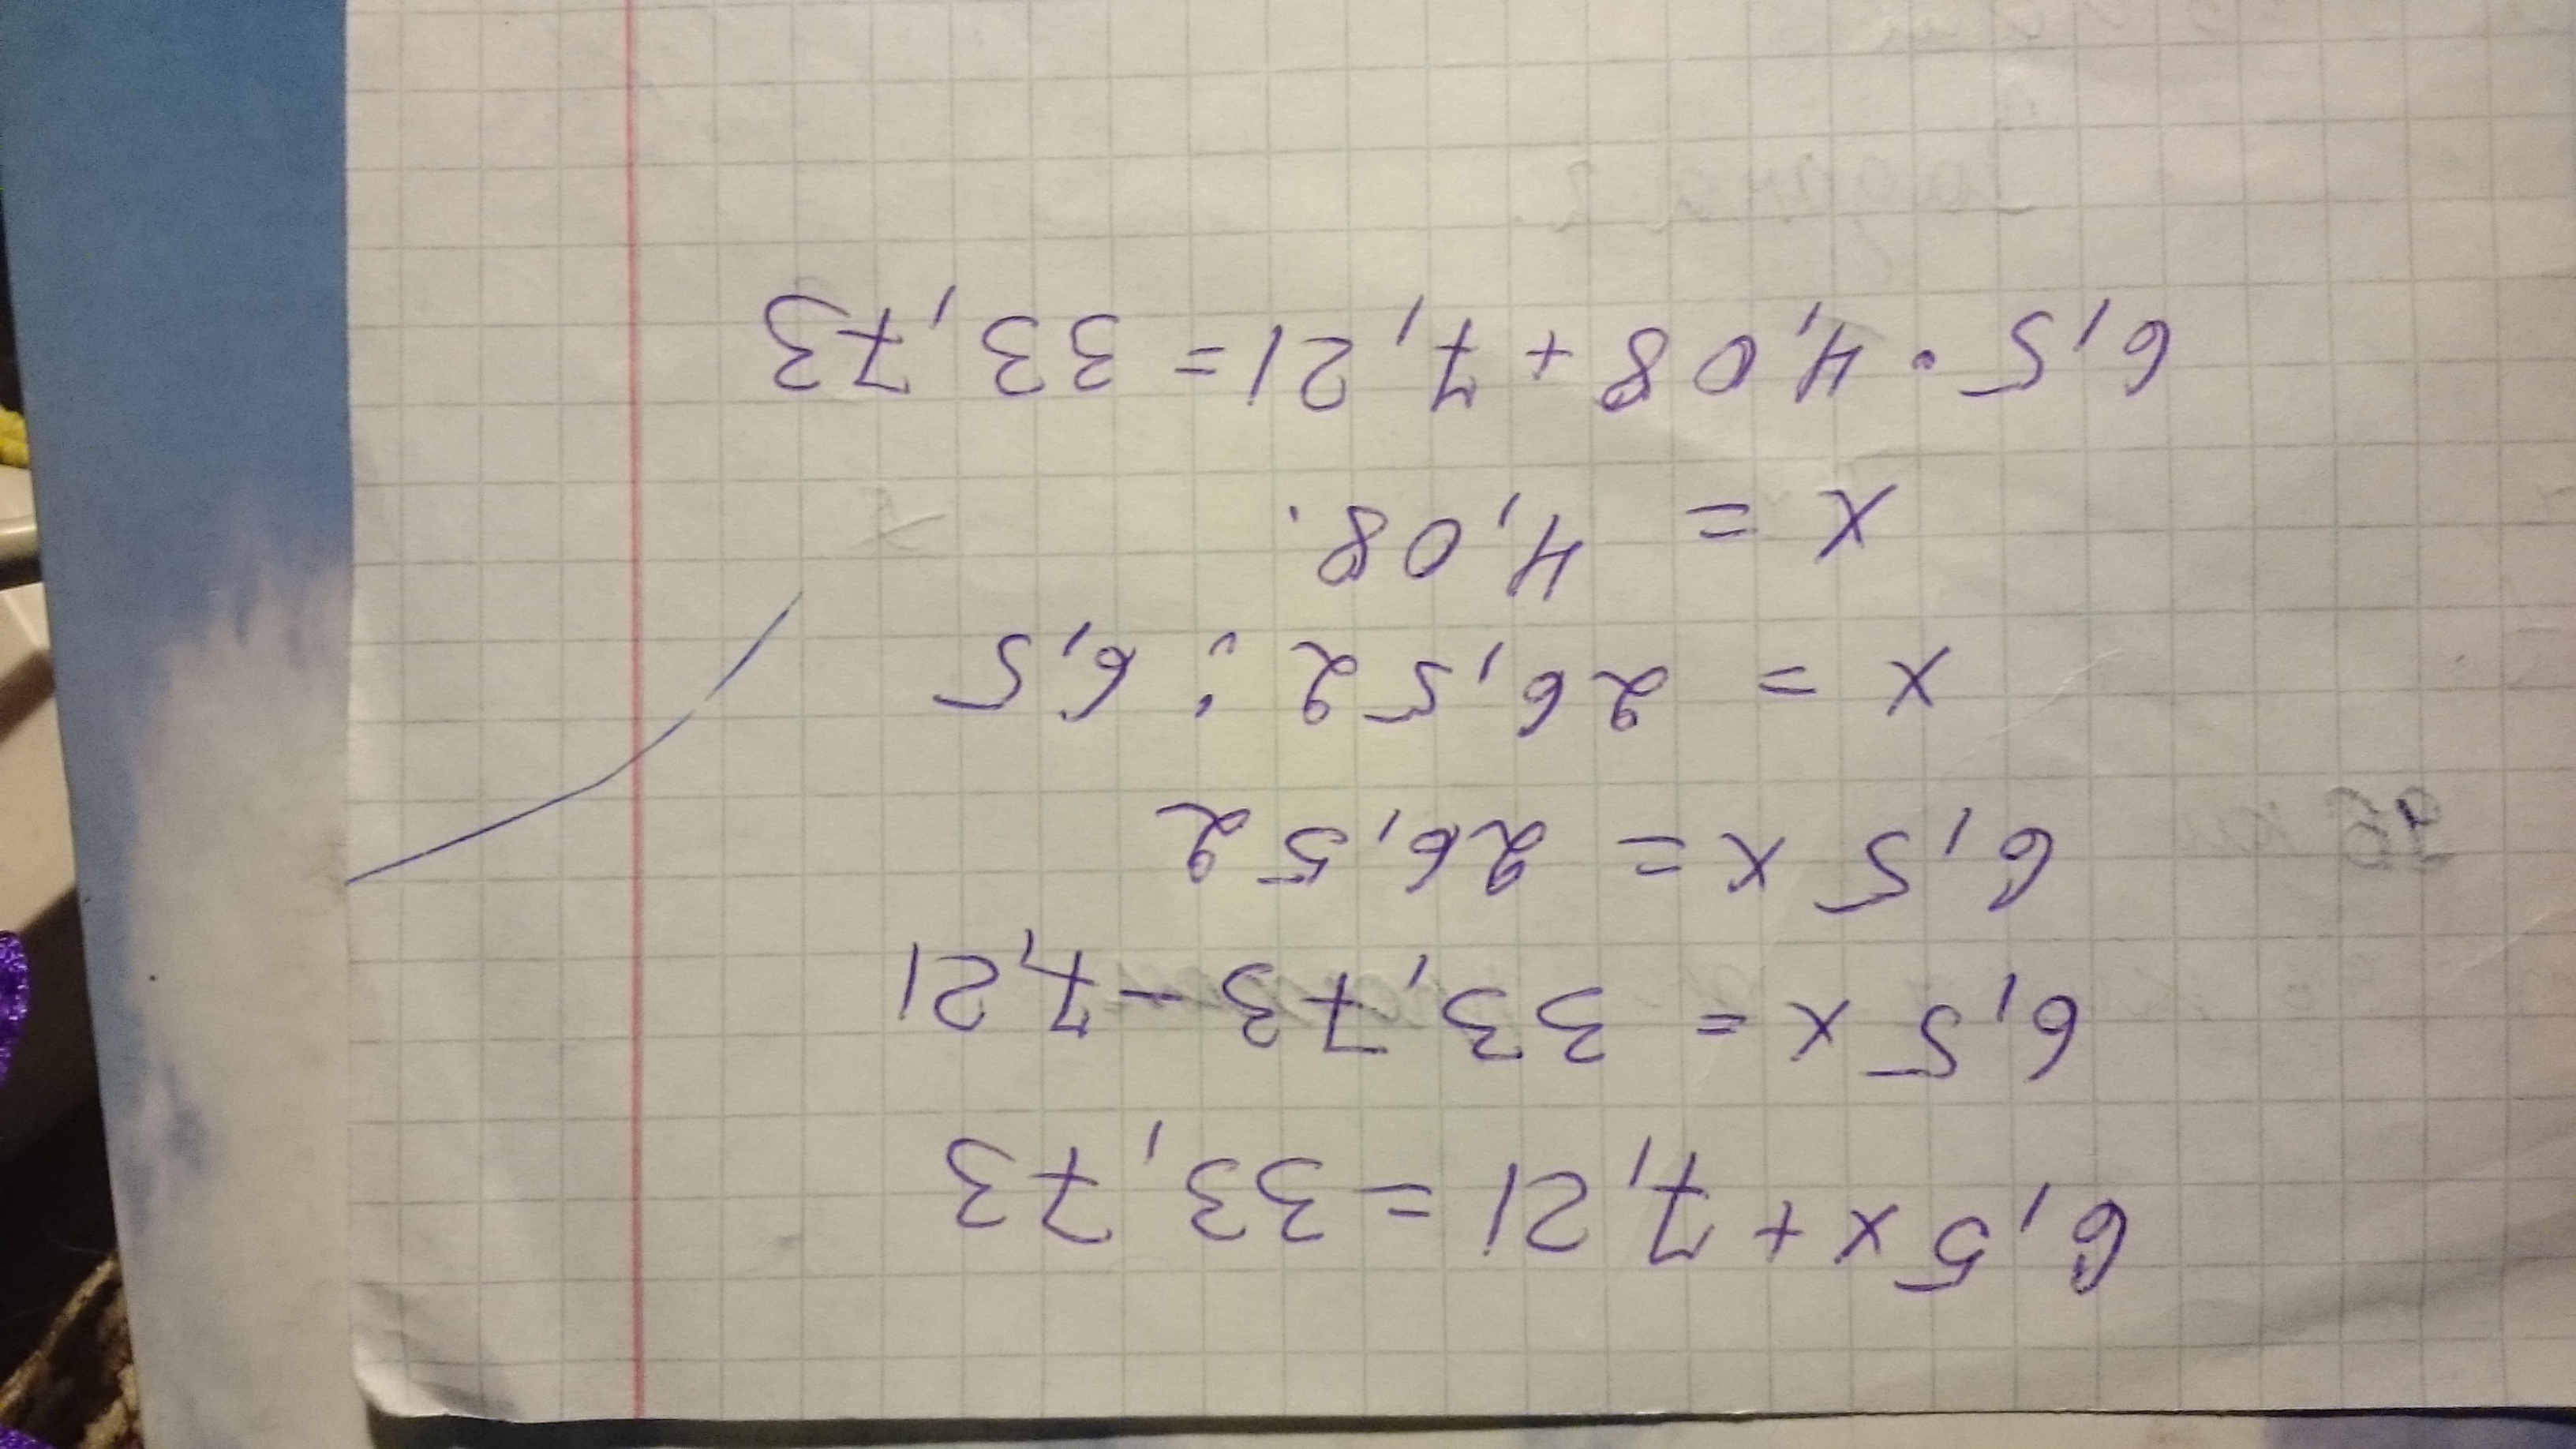 6,5x+7,21=33,73
6,5x=33,73-7,21
6,5x=26,52
x=26,52:6,5
x=4,08.
6,5·4,08+7,21=33,73